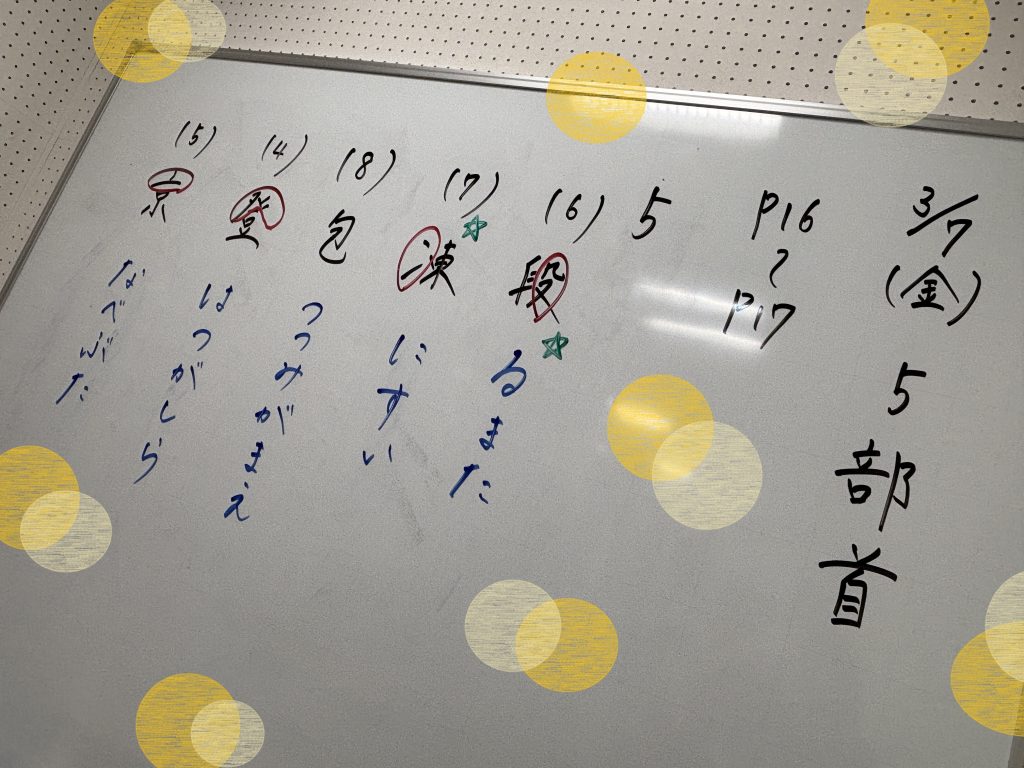 3/7(金) 5 部首
P16~P17
5
(6) 段 るまた
(7) 凍 にすい
(8) 包 つつみがまえ
(4) 登 はつがしら
(5) 京 なべぶた